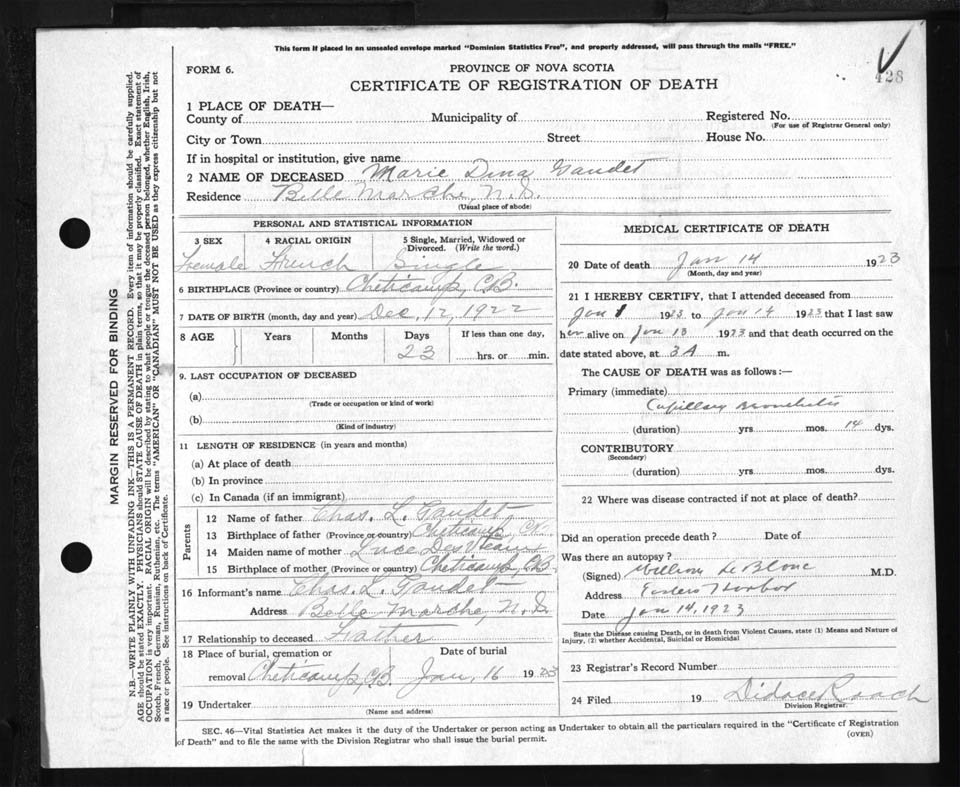 This form if placed in an unsealed envelope marked "Dominion Statistics Free", and properly addressed, will pass through the mails "FREE."
FORM 6.
PROVINCE OF NOVA SCOTIA
428
CERTIFICATE OF REGISTRATION OF DEATH
1 PLACE OF DEATH—
County of Municipality of Registered No.
(For use of Registrar General only)
City or Town Street House No.
If in hospital or institution, give name
2 NAME OF DECEASED Marie Dina Gaudet
Residence Belle Marche, N.S.
(Usual place of abode)
PERSONAL AND STATISTICAL INFORMATION
3 SEX 4 RACIAL ORIGIN 5 Single, Married, Widowed or
Divorced. (Write the word.)
Female French Single
6 BIRTHPLACE (Province or country) Cheticamp, C.B.
7 DATE OF BIRTH (month, day and year) Dec. 12, 1922
8 AGE Years Months Days If less than one day,
23 hrs. or min.
9. LAST OCCUPATION OF DECEASED
(a)
(Trade or occupation or kind of work)
(b)
(Kind of industry)
11 LENGTH OF RESIDENCE (in years and months)
(a) At place of death
(b) In province
(c) In Canada (if an immigrant)
Parents
12 Name of father Chas. L. Gaudet
13 Birthplace of father (Province or country) Cheticamp, C.B.
14 Maiden name of mother Luce DesVeaux
15 Birthplace of mother (Province or country) Cheticamp, C.B.
16 Informant's name Chas. L. Gaudet
Address Belle Marche, N.S.
17 Relationship to deceased Father
18 Place of burial, cremation or Date of burial
removal Cheticamp, C.B. Jan, 16 1923
19 Undertaker
(Name and address)
MEDICAL CERTIFICATE OF DEATH
20 Date of death Jan 14 1923
(Month, day and year)
21 I HEREBY CERTIFY, that I attended deceased from
Jan 1 1923 to Jan 14 1923 that I last saw
her alive on Jan 13 1923 and that death occurred on the
date stated above, at 3 A m.
The CAUSE OF DEATH was as follows:—
Primary (immediate)
Capillary Bronchitis
(duration) yrs. mos. 14 dys.
CONTRIBUTORY
(Secondary)
(duration) yrs. mos. dys.
22 Where was disease contracted if not at place of death?
Did an operation precede death? Date of
Was there an autopsy?
(Signed) William LeBlanc M.D.
Address Eastern Harbor
Date Jan 14, 1923
State the Disease causing Death, or in death from Violent Causes, state (1) Means and Nature of
Injury, (2) whether Accidental, Suicidal or Homicidal
23 Registrar's Record Number
24 Filed 19 Didace Roach
Division Registrar.
SEC. 46—Vital Statistics Act makes it the duty of the Undertaker or person acting as Undertaker to obtain all the particulars required in the "Certificate of Registration
of Death" and to file the same with the Division Registrar who shall issue the burial permit.
(OVER)
MARGIN RESERVED FOR BINDING
N.B.—WRITE PLAINLY WITH UNFADING INK—THIS IS A PERMANENT RECORD. Every item of information should be carefully supplied.
AGE should be stated EXACTLY. PHYSICIANS should STATE CAUSE OF DEATH in plain terms, so that it may be properly classified. Exact statement of
OCCUPATION is very important. RACIAL ORIGIN will be described by stating to what people or tongue the deceased person belonged, whether English, Irish,
Scotch, French, German, Russian, Ruthenian, etc. The terms "AMERICAN" OR "CANADIAN" MUST NOT BE USED as they express citizenship but not
a race or people. See instructions on back of Certificate.